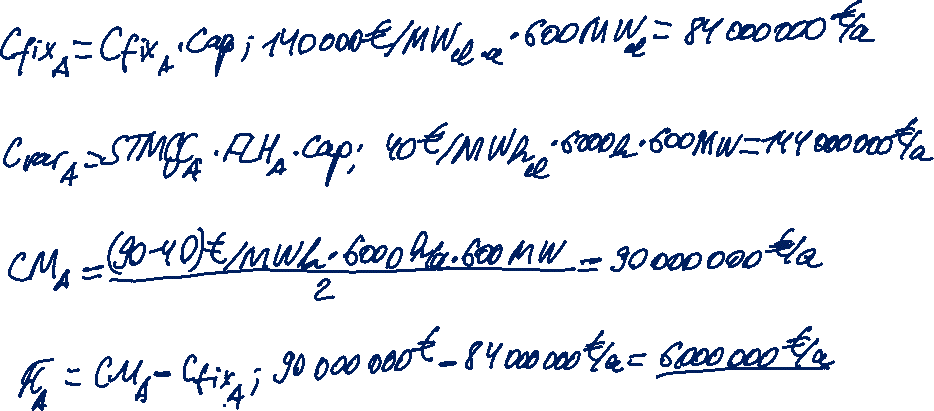 Cfix_A = Cfix_A · Cap; 140 000 €/MW_el·a · 600 MW_el = 84 000 000 €/a
Cvar_A = STMGC_A · FLH_A · Cap; 40 €/MWh_el · 6000h · 600MW = 144 000 000 €/a
CM_A = (90-40) €/MWh · 6000 h/a · 600 MW / 2 = 90 000 000 €/a
π_A = CM_A - Cfix_A; 90 000 000 € - 84 000 000 €/a = 6 000 000 €/a